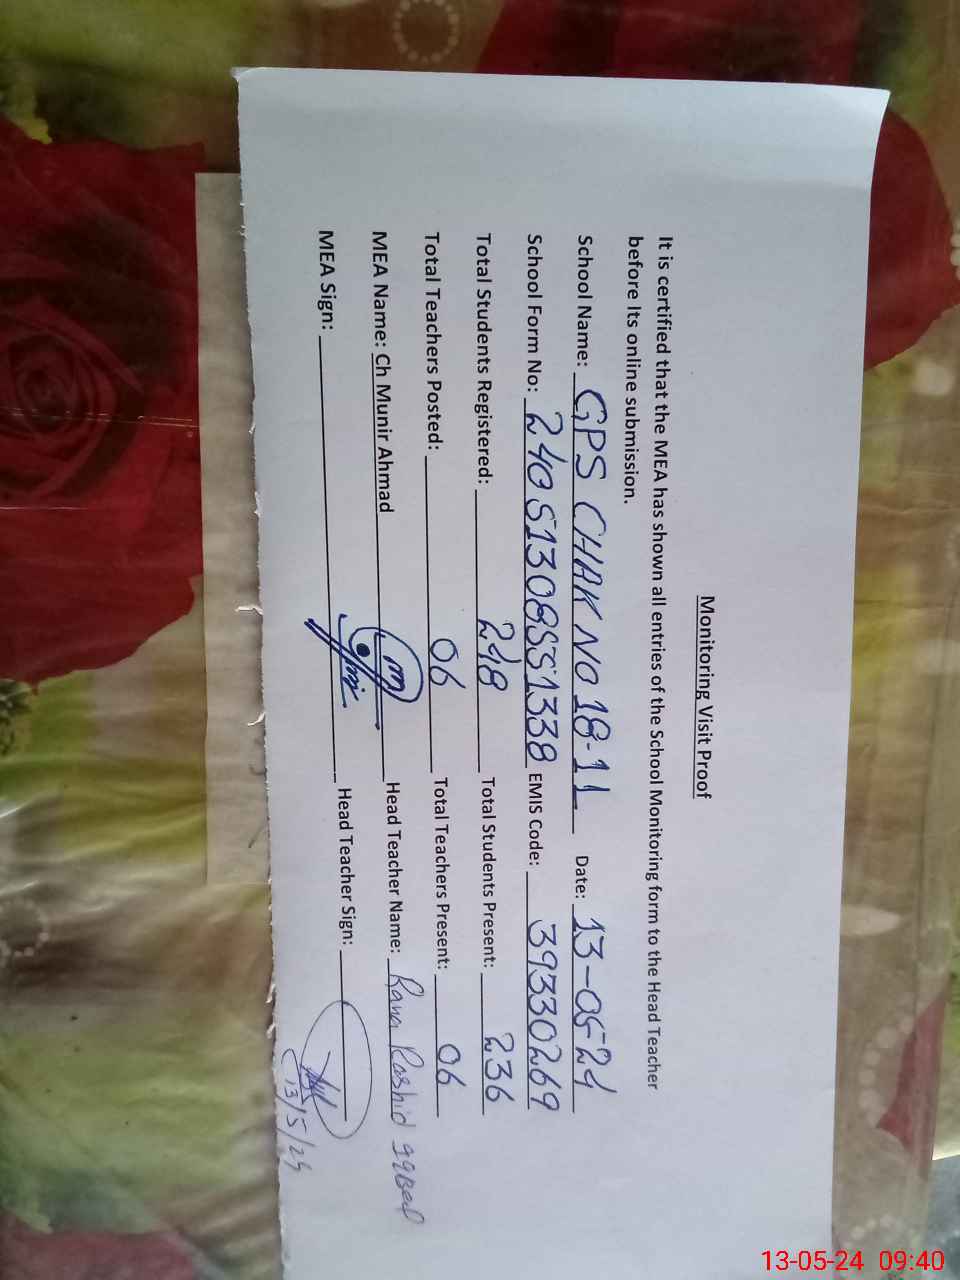 Monitoring Visit Proof
It is certified that the MEA has shown all entries of the School Monitoring form to the Head Teacher
before Its online submission.
School Name: GPS CHAK NO 18-11 Date: 13-05-24
School Form No: 240513085S1338 EMIS Code: 39330269
Total Students Registered: 248 Total Students Present: 236
Total Teachers Posted: 06 Total Teachers Present: 06
MEA Name: Ch Munir Ahmad Head Teacher Name: Rana Rashid Iqbal
MEA Sign: Head Teacher Sign:
13/5/24
13-05-24 09:40